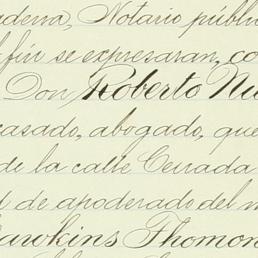 adena, Notario públi
l fin se expresaran, co
Don Roberto Nu
casado, abogado, que
de la calle Cerrada
de apoderado del m
awkins Thomon